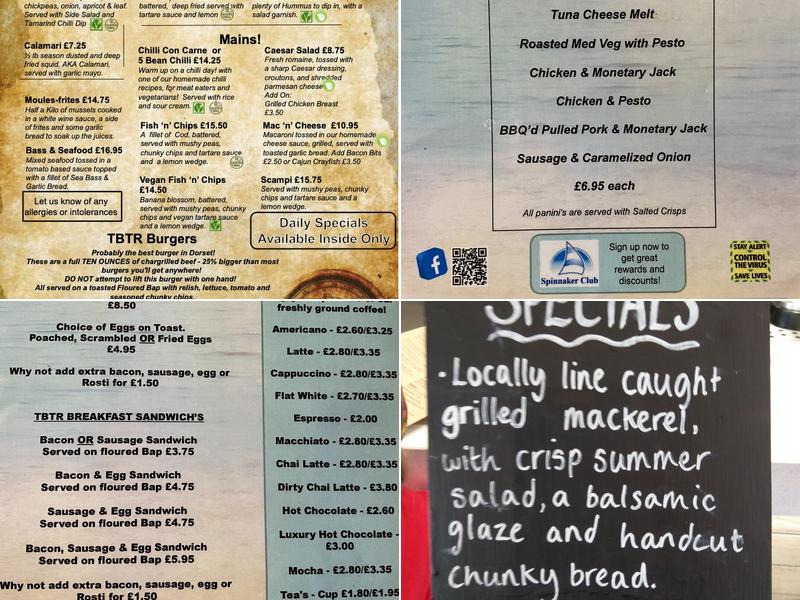 chickpeas, onion, apricot & leaf.
Served with Side Salad and
Tamarind Chilli Dip
Calamari £7.25
½ lb season dusted and deep
fried squid, AKA Calamari,
served with garlic mayo.
Moules-frites £14.75
Half a Kilo of mussels cooked
in a white wine sauce, a side
of frites and some garlic
bread to soak up the juices.
Bass & Seafood £16.95
Mixed seafood tossed in a
tomato based sauce topped
with a fillet of Sea Bass &
Garlic Bread.
Let us know of any
allergies or intolerances
battered, deep fried served with
tartare sauce and lemon
plenty of Hummus to dip in, with a
salad garnish.
Mains!
Chilli Con Carne or
5 Bean Chilli £14.25
Warm up on a chilli day! with
one of our homemade chilli
recipes, for meat eaters and
vegetarians! Served with rice
and sour cream.
Fish 'n' Chips £15.50
A fillet of Cod, battered,
served with mushy peas,
chunky chips and tartare sauce
and a lemon wedge.
Vegan Fish 'n' Chips
£14.50
Banana blossom, battered,
served with mushy peas, chunky
chips and vegan tartare sauce
and a lemon wedge.
Caesar Salad £8.75
Fresh romaine, tossed with
a sharp Caesar dressing,
croutons, and shredded
parmesan cheese
Add On:
Grilled Chicken Breast
£3.50
Mac 'n' Cheese £10.95
Macaroni tossed in our homemade
cheese sauce, grilled, served with
toasted garlic bread. Add Bacon Bits
£2.50 or Cajun Crayfish £3.50
Scampi £15.75
Served with mushy peas, chunky
chips and tartare sauce and a
lemon wedge.
Daily Specials
Available Inside Only
TBTR Burgers
Probably the best burger in Dorset!
These are a full TEN OUNCES of chargrilled beef - 25% bigger than most
burgers you'll get anywhere!
DO NOT attempt to lift this burger with one hand!
All served on a toasted Floured Bap with relish, lettuce, tomato and
seasoned chunky chips.
Tuna Cheese Melt
Roasted Med Veg with Pesto
Chicken & Monetary Jack
Chicken & Pesto
BBQ'd Pulled Pork & Monetary Jack
Sausage & Caramelized Onion
£6.95 each
All panini's are served with Salted Crisps
f
Spinnaker Club
Sign up now to
get great
rewards and
discounts!
STAY ALERT
CONTROL
THE VIRUS
SAVE LIVES
£8.50
Choice of Eggs on Toast.
Poached, Scrambled OR Fried Eggs
£4.95
Why not add extra bacon, sausage, egg or
Rosti for £1.50
TBTR BREAKFAST SANDWICH'S
Bacon OR Sausage Sandwich
Served on floured Bap £3.75
Bacon & Egg Sandwich
Served on floured Bap £4.75
Sausage & Egg Sandwich
Served on floured Bap £4.75
Bacon, Sausage & Egg Sandwich
Served on floured Bap £5.95
Why not add extra bacon, sausage, egg or
Rosti for £1.50
freshly ground coffee!
Americano - £2.60/£3.25
Latte - £2.80/£3.35
Cappuccino - £2.80/£3.35
Flat White - £2.70/£3.35
Espresso - £2.00
Macchiato - £2.80/£3.35
Chai Latte - £2.80/£3.35
Dirty Chai Latte - £3.80
Hot Chocolate - £2.60
Luxury Hot Chocolate -
£3.00
Mocha - £2.80/£3.35
Tea's - Cup £1.80/£1.95
SPECIALS
· Locally line caught
grilled mackerel,
with crisp summer
salad, a balsamic
glaze and handcut
chunky bread.